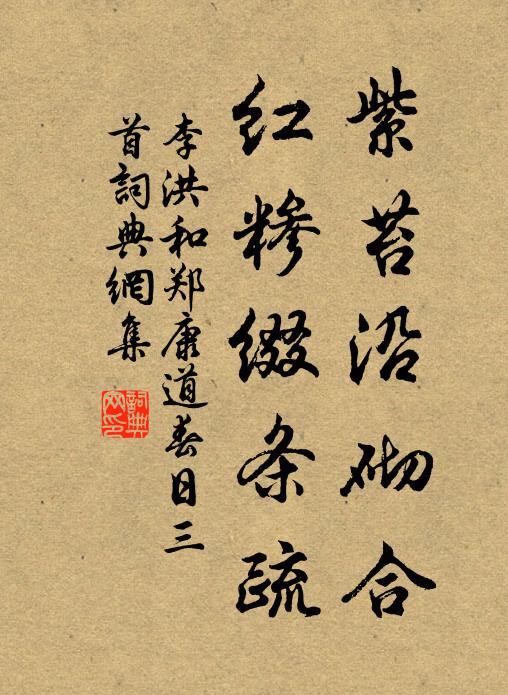 紫苔沿砌合
红糁缀条疏
李洪和郑康道春日三
首詞典網集
詞典网印